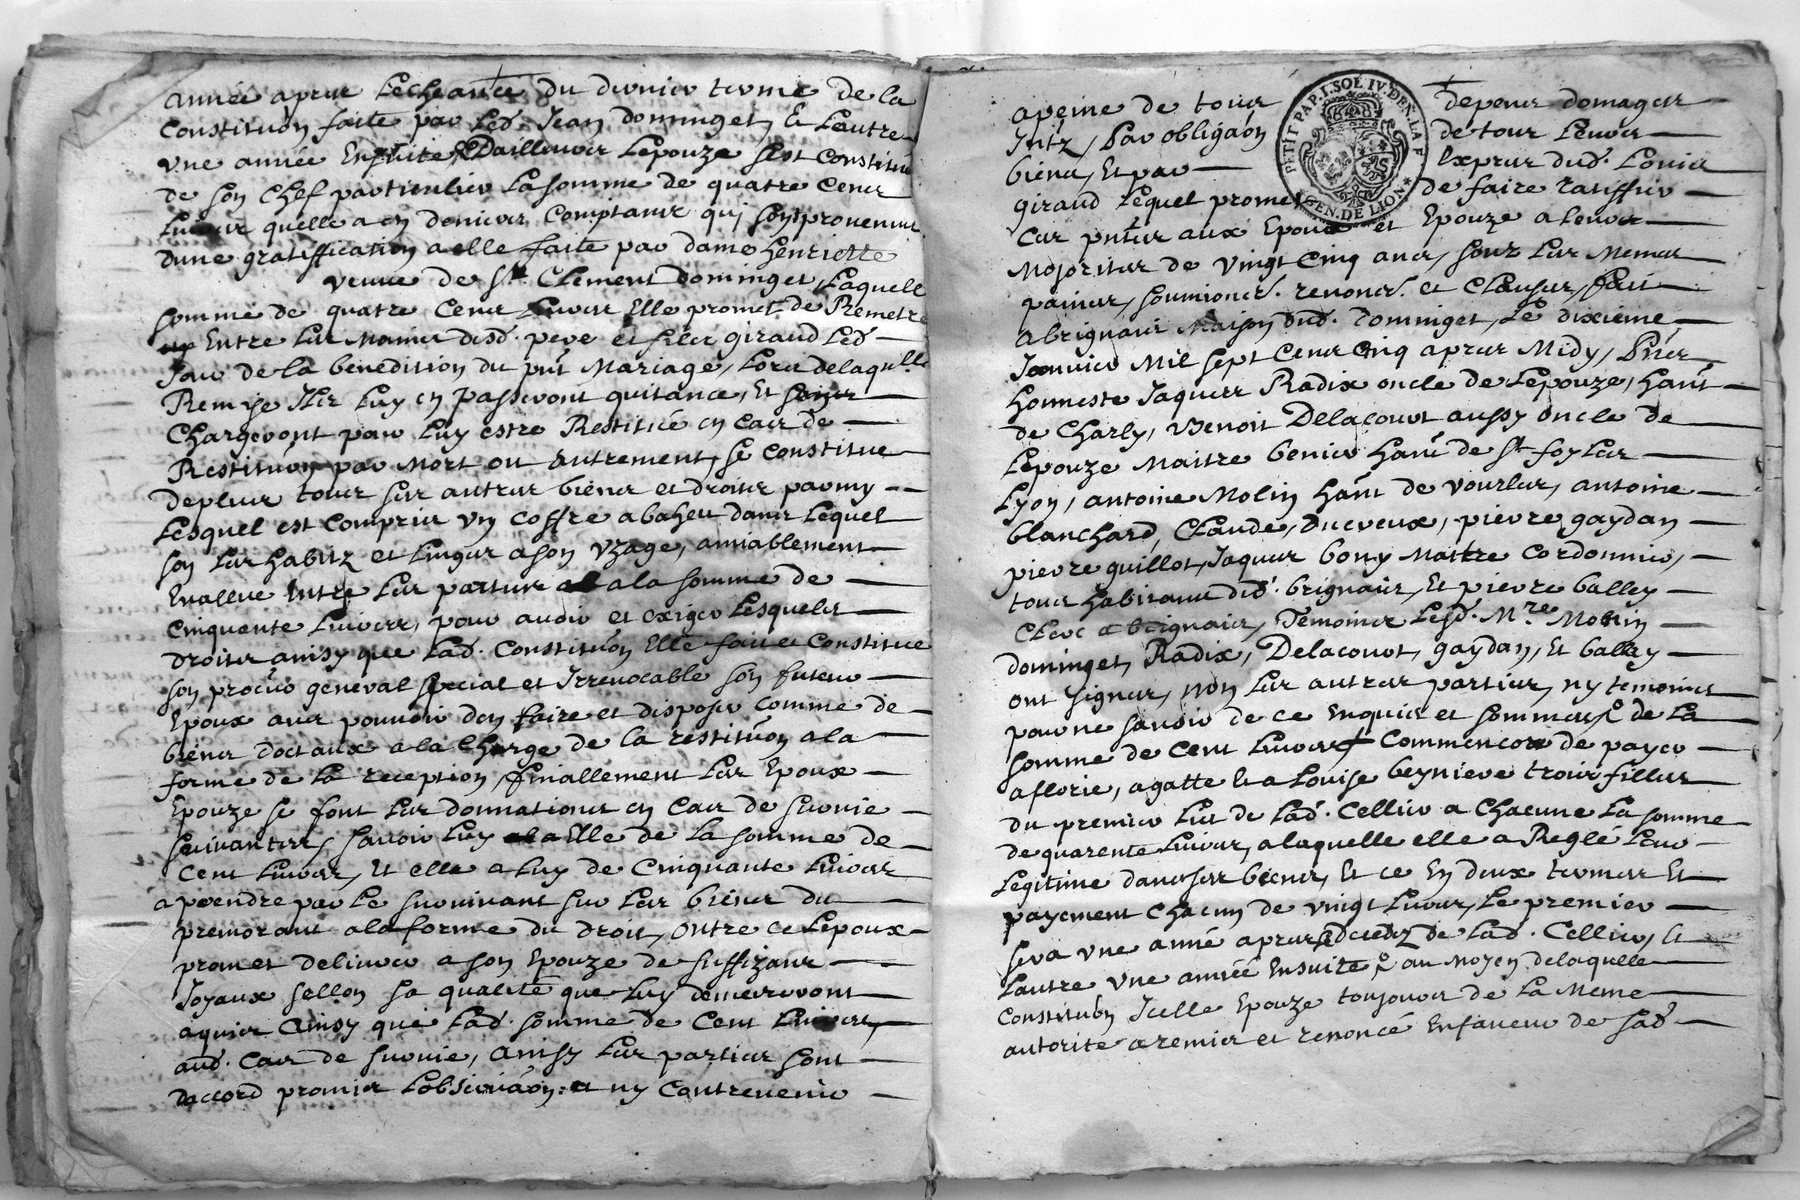 année apres Lecheance du dernier terme de la
Constituōn faite par Led. Jean dominget, Et Lautre
vne année Ensuite Dailleurs Lepouze sest Constitue
de son Chef particulier La somme de quatre Cens
Liures quelle a en deniers Comptans quj sont prouenus
dune gratiffication a elle faite par dame henriette
veuue de Sr. Clement dominget, Laquelle
somme de quatre Cens Liures Elle promet de Remetre
Entre Les Mains desd. pere et fils giraud Led.
Jour de la benedition du pnt Mariage, Lors delaqlle
Remise Ilz Luy en passeront quitance, Et
Chargeront pour Luy estre Restitué en Cas de
Restituōn par Mort ou autrement, se Constitue
deplus tous ses autres biens et droits parmy
Lesquel est Compris vn Coffre a baheu dans Lequel
son Les habitz et Linges a son vzage, amiablement
Euallué Entre Les parties a la somme de
Cinquante Liures, pour auoir et exiger Lesquels
droits ainsy que Lad. Constituōn Elle fait et Constitue
son procur general special et Irreuocable son futeur
Epoux auec pouuoir den faire et disposer Comme de
biens doctaux a la Charge de la restituōn a la
forme de La reception, finallement Les Epoux
Epouze se font Les donnations en Cas de suruie
suiuantes, sauoir Luy a Elle de La somme de
Cent Liures, Et elle a Luy de Cinquante Liures
a prendre par Le suruiuant sur Les biens du
premorant a la forme du droit, outre ce Lepoux
promet deliurer a son Epouze de suffizans
Joyaux sellon sa qualité que Luy demeureront
aquis ainsy que Lad. somme de Cent Liures
aud. Cas de suruie, ainsy Les parties sont
daccord promis Lobseruaōn et ny Contreuenir
a peine de tous depens domages
Intz, Par obligaōn de tous Leurs
biens, Et par Expres dud. Louis
giraud Lequel promet de faire ratiffier
Ces pntes aux Epoux et Epouze a leurs
Majorites de vingt Cinq ans, sous Les Memes
paines, soumions. renons. et Clauses, fait
a brignais Maison dud. Dominget, Le dixieme
Januier Mil sept Cens Cinq apres Midy, Pñs
honneste Jaques Radix oncle de Lepouze, hant
de Charly, Benoit Delacourt aussy oncle de
Lepouze Maitre benier hant de St foy Les
Lyon, antoine Molin hant de vourles, antoine
blanchard, Claude, Ducreux, pierre gaydan
pierre guillot, Jaques bony Maitre Cordonnier,
tous habitans dud. brignais, Et pierre balley
Clerc a brignais, Temoins Lesd. Mre Morin
dominget, Radix, Delacourt, gaydan, Et balley
ont signes, non Les autres parties, ny temoins
pour ne sauoir de ce Enquis et sommes de La
somme de Cent Liures Commencera de payer
a florie, agatte Et a Louise beyniere trois filles
du premier Lit de Lad. Cellier a Chacune La somme
de quarente Liures, a laquelle elle a Reglé Leur
Legitime dans ses biens, Et ce En deux termes Et
payement Chacun de vingt Liures, Le premier
sera vne anné apres de Lad. Cellier, Et
Lautre vne année Ensuite au Moyen de laquelle
Constituōn Icelle Epouze toujours de La Meme
autorite a remis et renoncé Enfaueur de sad.
PETIT PAP. I. SOL IV. DEN. LA F
GEN. DE LION